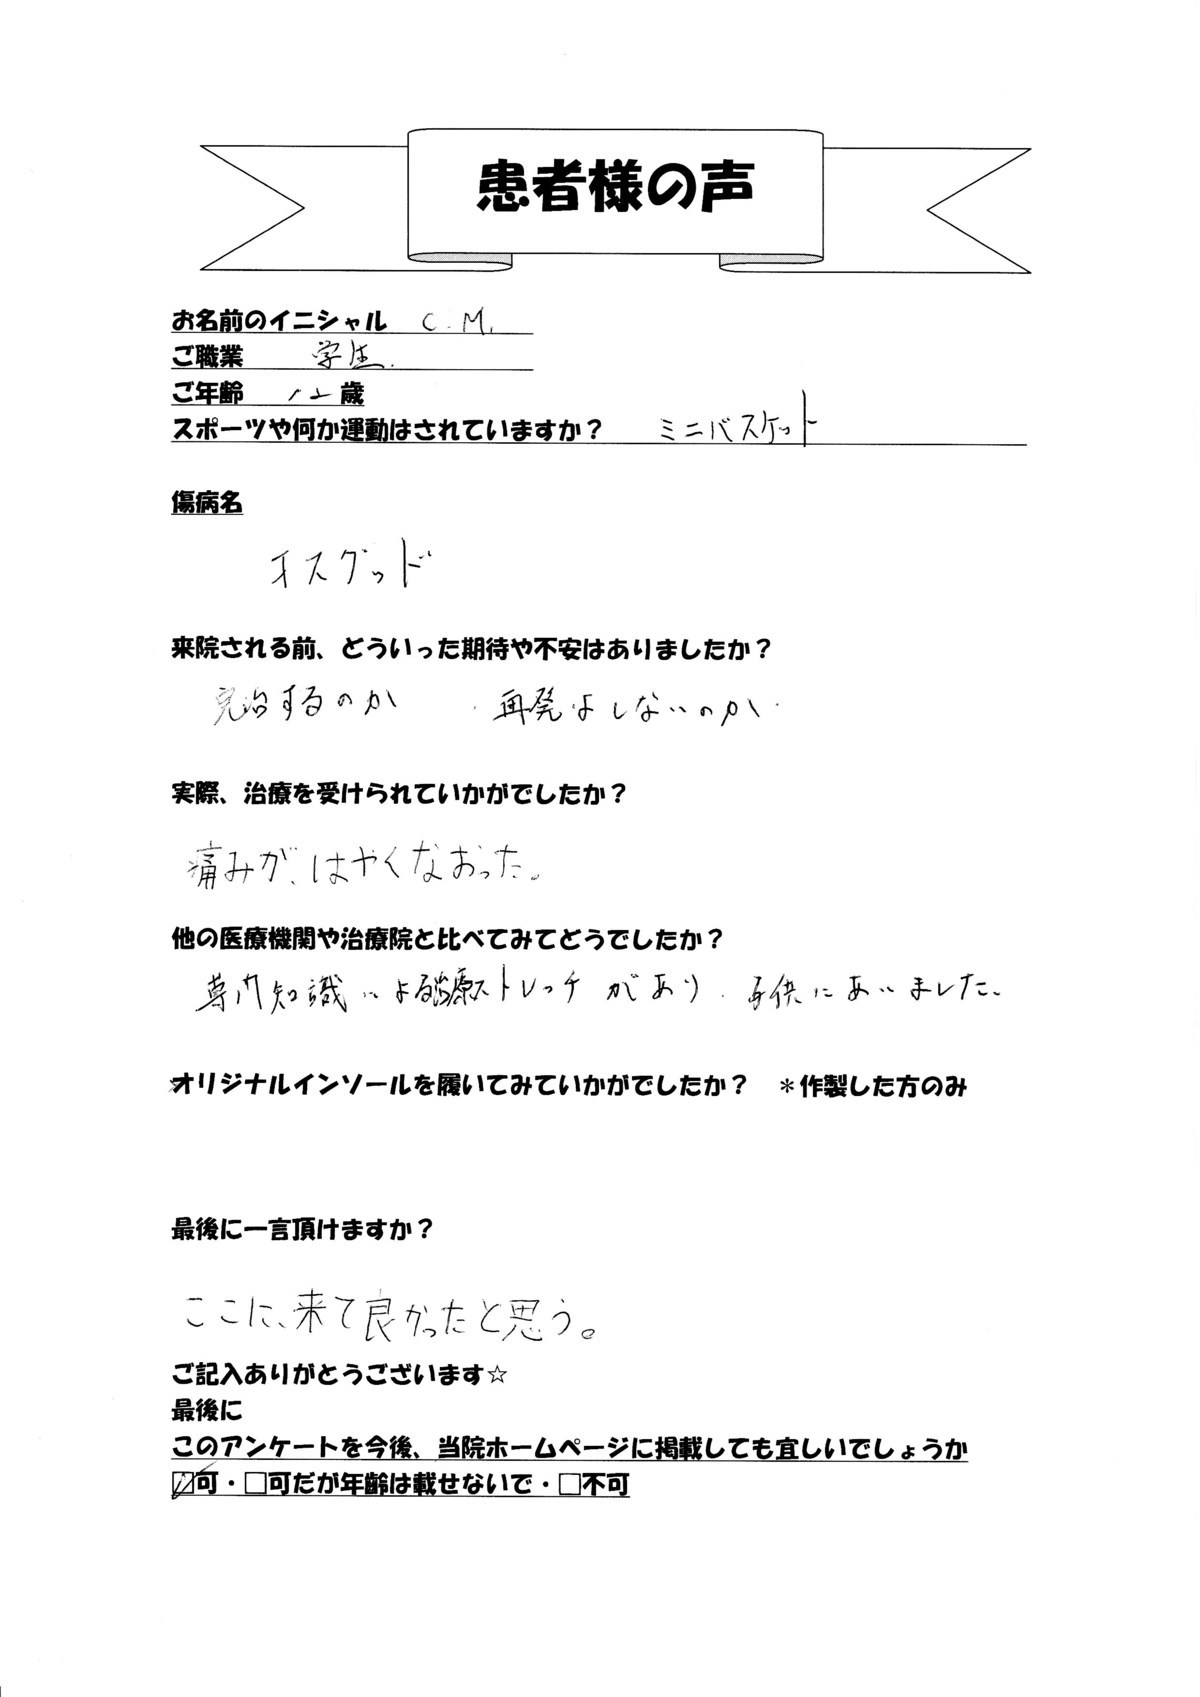 患者様の声
お名前のイニシャル C.M.
ご職業 学生.
ご年齢 12歳
スポーツや何か運動はされていますか? ミニバスケット
傷病名
オスグッド
来院される前、どういった期待や不安はありましたか?
完治するのか ・再発はしないのか・
実際、治療を受けられていかがでしたか?
痛みが、はやくなおった。
他の医療機関や治療院と比べてみてどうでしたか?
専門知識による治療ストレッチがあり、子供にあいました、
オリジナルインソールを履いてみていかがでしたか? *作製した方のみ
最後に一言頂けますか?
ここに、来て良かったと思う。
ご記入ありがとうございます☆
最後に
このアンケートを今後、当院ホームページに掲載しても宜しいでしょうか
☑可・□可だが年齢は載せないで・□不可